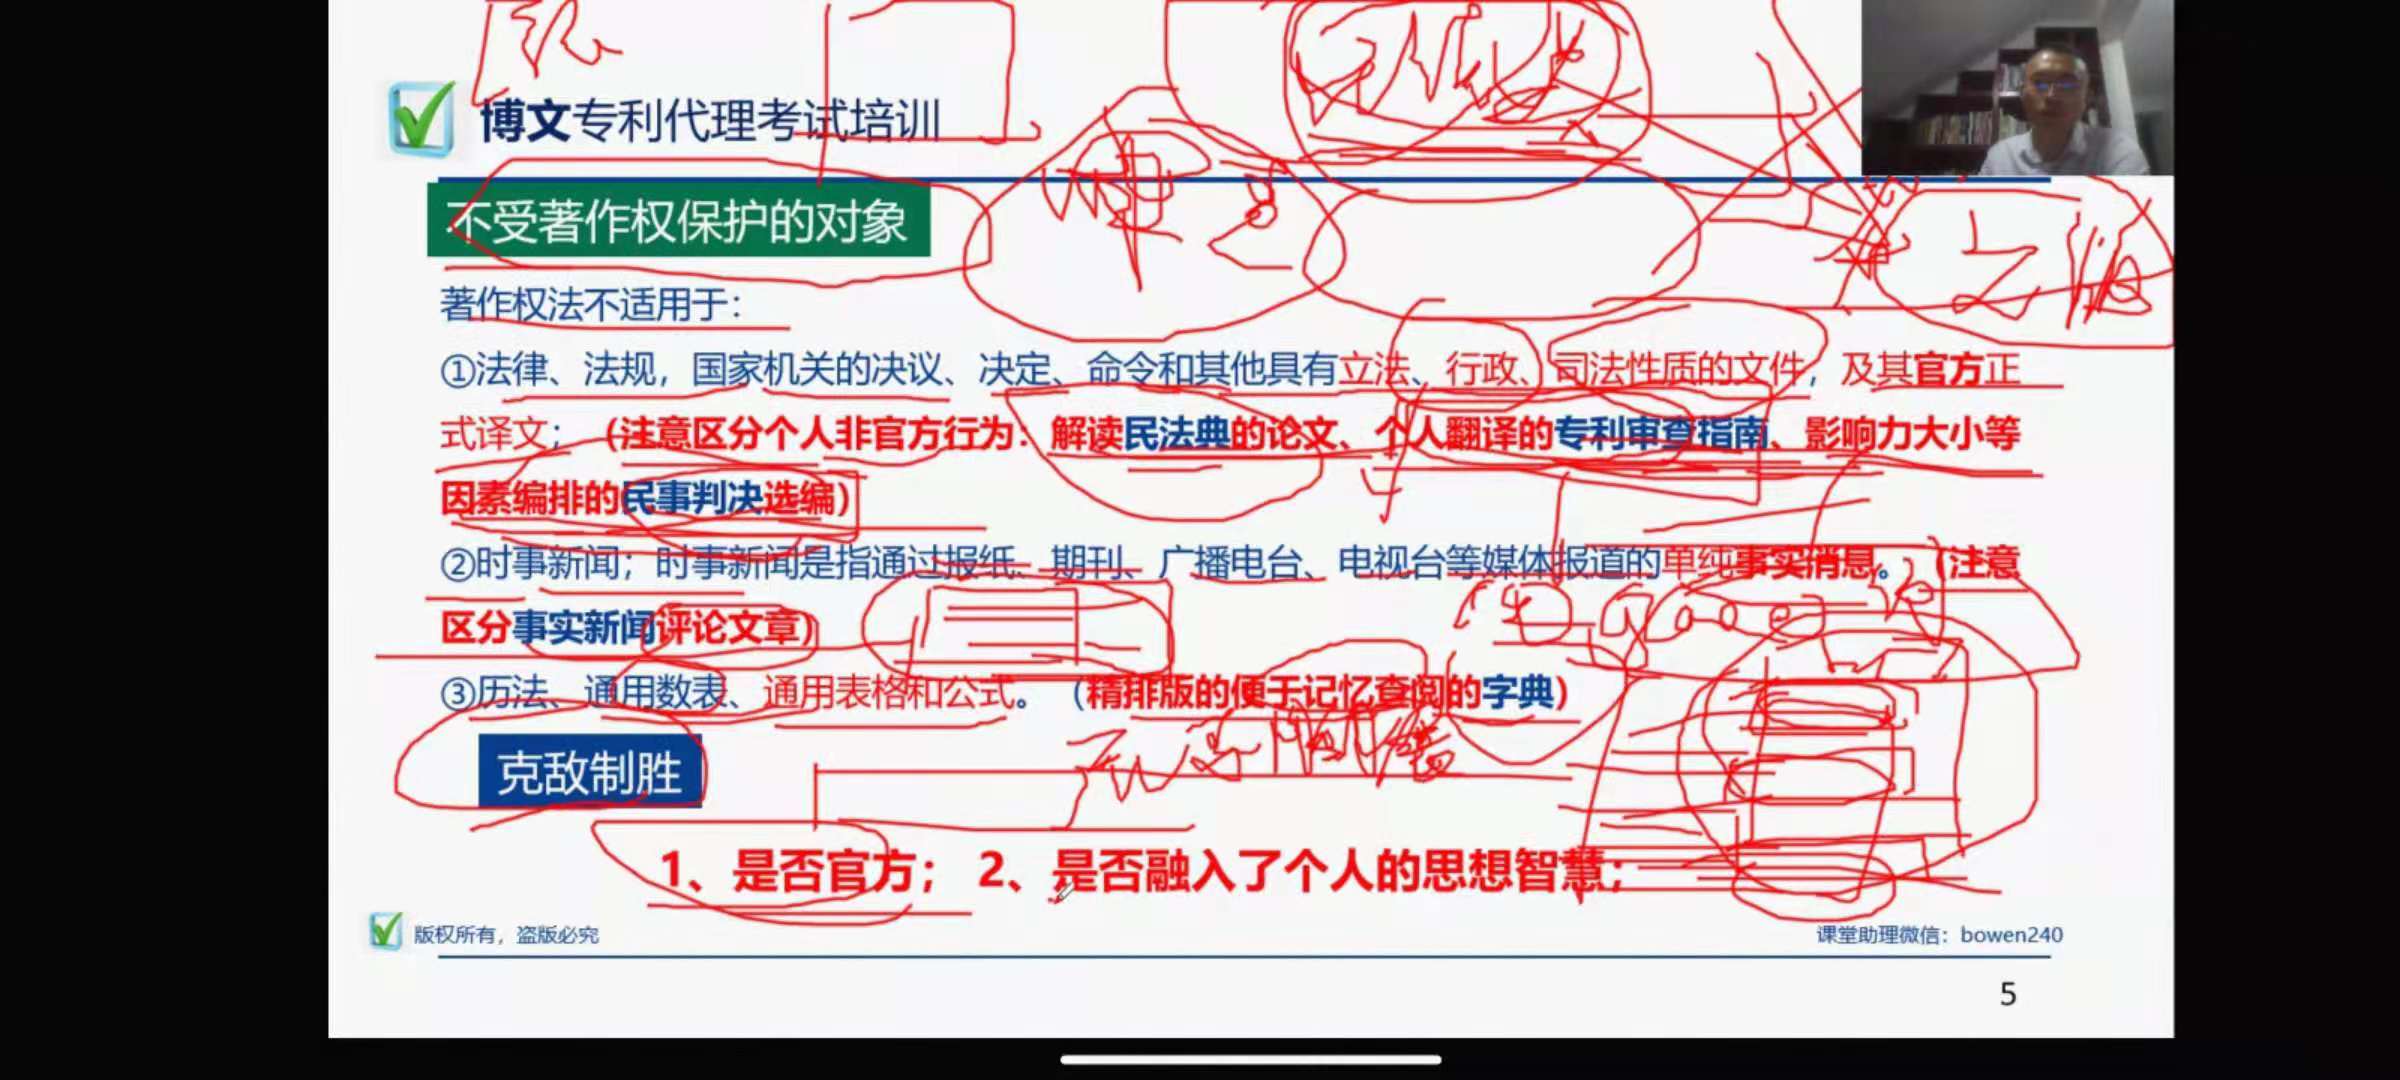 博文专利代理考试培训
不受著作权保护的对象
著作权法不适用于：
①法律、法规，国家机关的决议、决定、命令和其他具有立法、行政、司法性质的文件，及其官方正
式译文；（注意区分个人非官方行为：解读民法典的论文、个人翻译的专利审查指南、影响力大小等
因素编排的民事判决选编）
②时事新闻；时事新闻是指通过报纸、期刊、广播电台、电视台等媒体报道的单纯事实消息。（注意
区分事实新闻评论文章）
③历法、通用数表、通用表格和公式。（精排版的便于记忆查阅的字典）
克敌制胜
1、是否官方； 2、是否融入了个人的思想智慧；
版权所有，盗版必究
课堂助理微信：bowen240
5